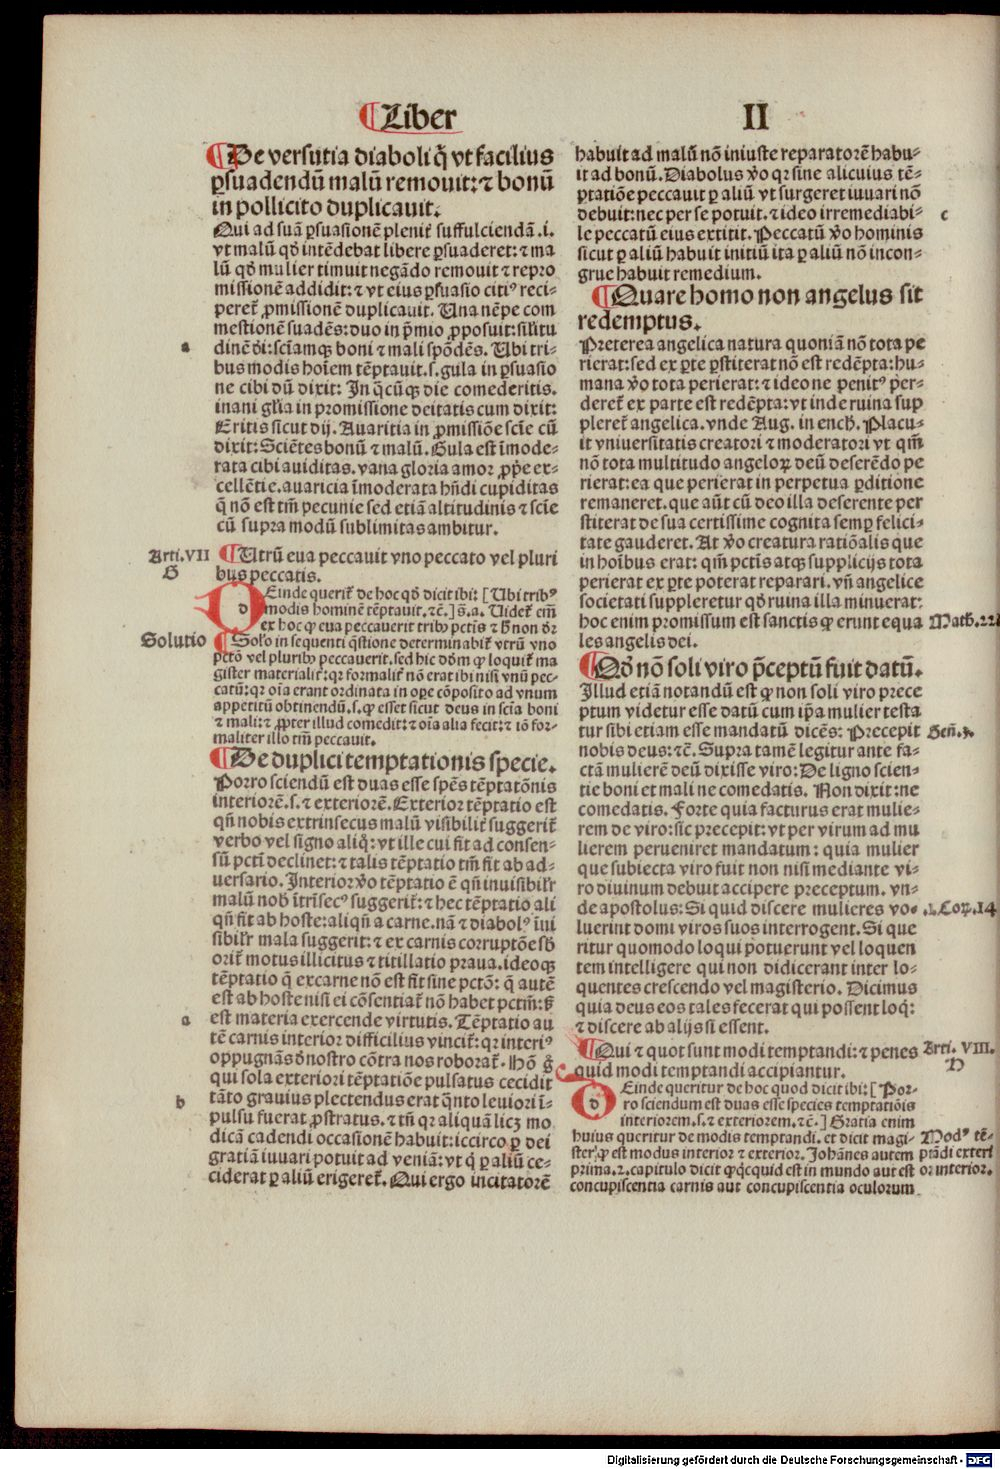 ¶Liber II
¶De versutia diaboli q̄ vt facilius
ꝑsuadendū malū remouit: ⁊ bonū
in pollicito duplicauit.
Qui ad suā ꝑsuasionē pleniꝰ suffulciendā .i.
vt malū qď intēdebat libere ꝑsuaderet: ⁊ ma
lū qď mulier timuit negādo remouit ⁊ repro
missionē addidit: ⁊ vt eius ꝑsuasio citiꝰ reci-
peret᷑ ꝓmissionē duplicauit. Una nēpe com
mestionē suadēs: duo in p̄mio ꝓposuit: sil’itu
a dinē dī: sciam̄qꝫ boni ⁊ mali spōdēs. Ubi tri-
bus modis hoīem tēptauit. s. gula in ꝑsuasio
ne cibi dū dixit: In q̄cūqꝫ die comederitis.
inani gl’ia in promissione deitatis cum dixit:
Eritis sicut dij. Auaritia in ꝓmissiōe sciē cū
dixit: Sciētes bonū ⁊ malū. Gula est īmode-
rata cibi auiditas. vana gloria amor ꝓpͥe ex-
cellētie. auaricia īmoderata hn̄di cupiditas
q̄ nō est tm̄ pecunie sed etiā altitudinis ⁊ sciē
cū supra modū sublimitas ambitur.
Arti. VII ¶Utrū eua peccauit vno peccato vel pluri
G bus peccatis.
DEinde querit᷑ de hoc qď dicit ibi: [Ubi tribꝰ
modis hominē tēptauit. ⁊c̄.] s. a. Uidet᷑ em̄
ex hoc ꝙ eua peccauerit tribꝫ pctīs ⁊ hᷤ non dr̄
Solutio ¶Solo in sequenti q̄stione determinabit᷑ vtrū vno
pctō vel pluribꝫ peccauerit. sed hic dōm ꝙ loquit᷑ ma
gister materialit᷑: qꝛ formalit᷑ nō erat ibi nisi vnū pec-
catū: qꝛ oīa erant ordinata in oꝑe cōposito ad vnum
appetitū obtinendū. s. ꝙ esset sicut deus in scīa boni
⁊ mali: ⁊ ꝓpter illud comedit: ⁊ oīa alia fecit: ⁊ iō for-
maliter illo tm̄ peccauit.
¶De duplici temptationis specie.
Porro sciendū est duas esse spēs tēptatōnis
interiorē. s. ⁊ exteriorē. Exterior tēptatio est
qn̄ nobis extrinsecus malū visibilit᷑ suggerit᷑
verbo vel signo aliqͦ: vt ille cui fit ad consen-
sū pctī declinet: ⁊ talis tēptatio tm̄ fit ab ad-
versario. Interior v̄o tēptatio ē qn̄ inuisibilr̄
malū nob̄ ītrīsecꝰ suggerit᷑: ⁊ hec tēptatio ali
qn̄ fit ab hoste: aliqn̄ a carne. nā ⁊ diabolꝰ īui
sibilr̄ mala suggerit: ⁊ ex carnis corruptōe sb̄
orit᷑ motus illicitus ⁊ titillatio praua. ideoqꝫ
tēptatio q̄ ex carne nō est fit sine pctō: q̄ autē
est ab hoste nisi ei cōsentiat᷑ nō habet pctm̄: sꝫ
a est materia exercende virtutis. Tēptatio au
tē carnis interior difficilius vincit᷑: qꝛ interiꝰ
oppugnās d̄ nostro cōtra nos roborat᷑. Hō g̊
qui sola exteriori tēptatiōe pulsatus cecidit
b tāto grauius plectendus erat q̄nto leuiori ī-
pulsu fuerat ꝓstratus. ⁊ tn̄ qꝛ aliquā licꝫ mo
dicā cadendi occasionē habuit: iccirco ꝑ dei
gratiā iuuari potuit ad veniā: vt q̄ ꝑ aliū ce-
ciderat ꝑ aliū erigeret᷑. Qui ergo incitatorē
habuit ad malū nō iniuste reparatorē habu-
it ad bonū. Diabolus v̄o qꝛ sine alicuius tē-
ptatiōe peccauit ꝑ aliū vt surgeret iuuari nō
debuit: nec per se potuit. ⁊ ideo irremediabi- c
le peccatū eius extitit. Peccatū v̄o hominis
sicut ꝑ aliū habuit initiū ita ꝑ aliū nō incon-
grue habuit remedium.
¶Quare homo non angelus sit
redemptus.
Preterea angelica natura quoniā nō tota pe
rierat: sed ex ꝑte ꝑstiterat nō est redēpta: hu-
mana v̄o tota perierat: ⁊ ideo ne penitꝰ per-
deret᷑ ex parte est redēpta: vt inde ruina sup
pleret᷑ angelica. vnde Aug. in ench. Placu-
it vniuersitatis creatori ⁊ moderatori vt qm̄
nō tota multitudo angeloꝝ deū deserēdo pe
rierat: ea que perierat in perpetua ꝑditione
remaneret. que aūt cū deo illa deserente per
stiterat de sua certissime cognita semꝑ felici-
tate gauderet. At v̄o creatura rationālis que
in hoībus erat: qm̄ pctīs atqꝫ supplicijs tota
perierat ex ꝑte poterat reparari. vn̄ angelice
societati suppleretur qď ruina illa minuerat:
hoc enim promissum est sanctis ꝙ erunt equa Math. 22
les angelis dei.
¶Qď nō soli viro p̄ceptū fuit datū.
Illud etiā notandū est ꝙ non soli viro prece
ptum videtur esse datū cum ip̄a mulier testa
tur sibi etiam esse mandatū dicēs: Precepit Gen. 3.
nobis deus: ⁊c̄. Supra tamē legitur ante fa-
ctā mulierē deū dixisse viro: De ligno scien-
tie boni et mali ne comedatis. Non dixit: ne
comedatis. Forte quia facturus erat mulie-
rem de viro: sic precepit: vt per virum ad mu
lierem perueniret mandatum: quia mulier
que subiecta viro fuit non nisi mediante vi-
ro diuinum debuit accipere preceptum. vn-
de apostolus: Si quid discere mulieres vo- .1. Coꝝ. 14
luerint domi viros suos interrogent. Si que
ritur quomodo loqui potuerunt vel loquen
tem intelligere qui non didicerant inter lo-
quentes crescendo vel magisterio. Dicimus
quia deus eos tales fecerat qui possent loqͥ:
⁊ discere ab alijs si essent.
¶Qui ⁊ quot sunt modi temptandi: ⁊ penes Arti. VIII.
quid modi temptandi accipiantur. H
DEinde queritur de hoc quod dicit ibi: [Por-
ro sciendum est duas esse species temptatiōis
interiorem. s. ⁊ exteriorem. ⁊c̄.] Gratia enim
huius queritur de modis temptandi. et dicit magi- Modꝰ tē-
ster: ꝙ est modus interior ⁊ exterior. Johānes autem ptādi exteri
prima. 2. capitulo dicit ꝙ qͥcquid est in mundo aut est or interior.
concupiscentia carnis aut concupiscentia oculorum
Digitalisierung gefördert durch die Deutsche Forschungsgemeinschaft - DFG